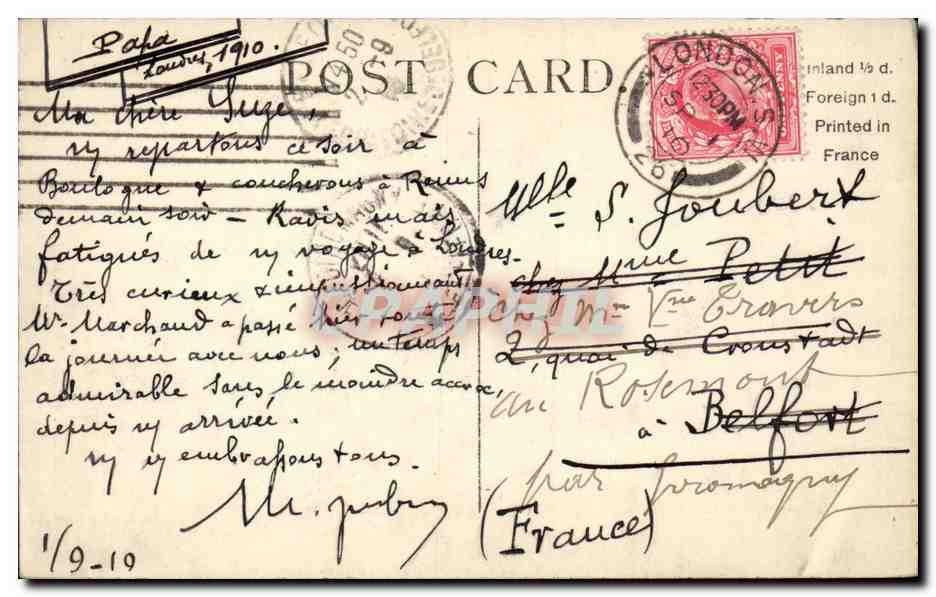 Papa
Londres, 1910.
POST CARD
Inland ½ d.
Foreign 1 d.
Printed in
France
LONDON. S.W
12.30 PM
SP 1
10
Ma chère Suze,
ns repartons ce soir à
Boulogne & coucherons à Reims
demain soir – Ravis mais
fatigués de ns voyage à Londres.
Très curieux & impressionnant
Mr Marchand a passé hier toute
la journée avec nous; un temps
admirable sans le moindre accroc,
depuis ns arrivée.
ns ns embrassons tous.
M. Joubert
1/9-10
Mlle S. Joubert
chez Mme Petit
chez Mme Vve Travers
2, quai de Cronstadt
au Rosemont
à Belfort
par Giromagny
(France)
CPAPHIL